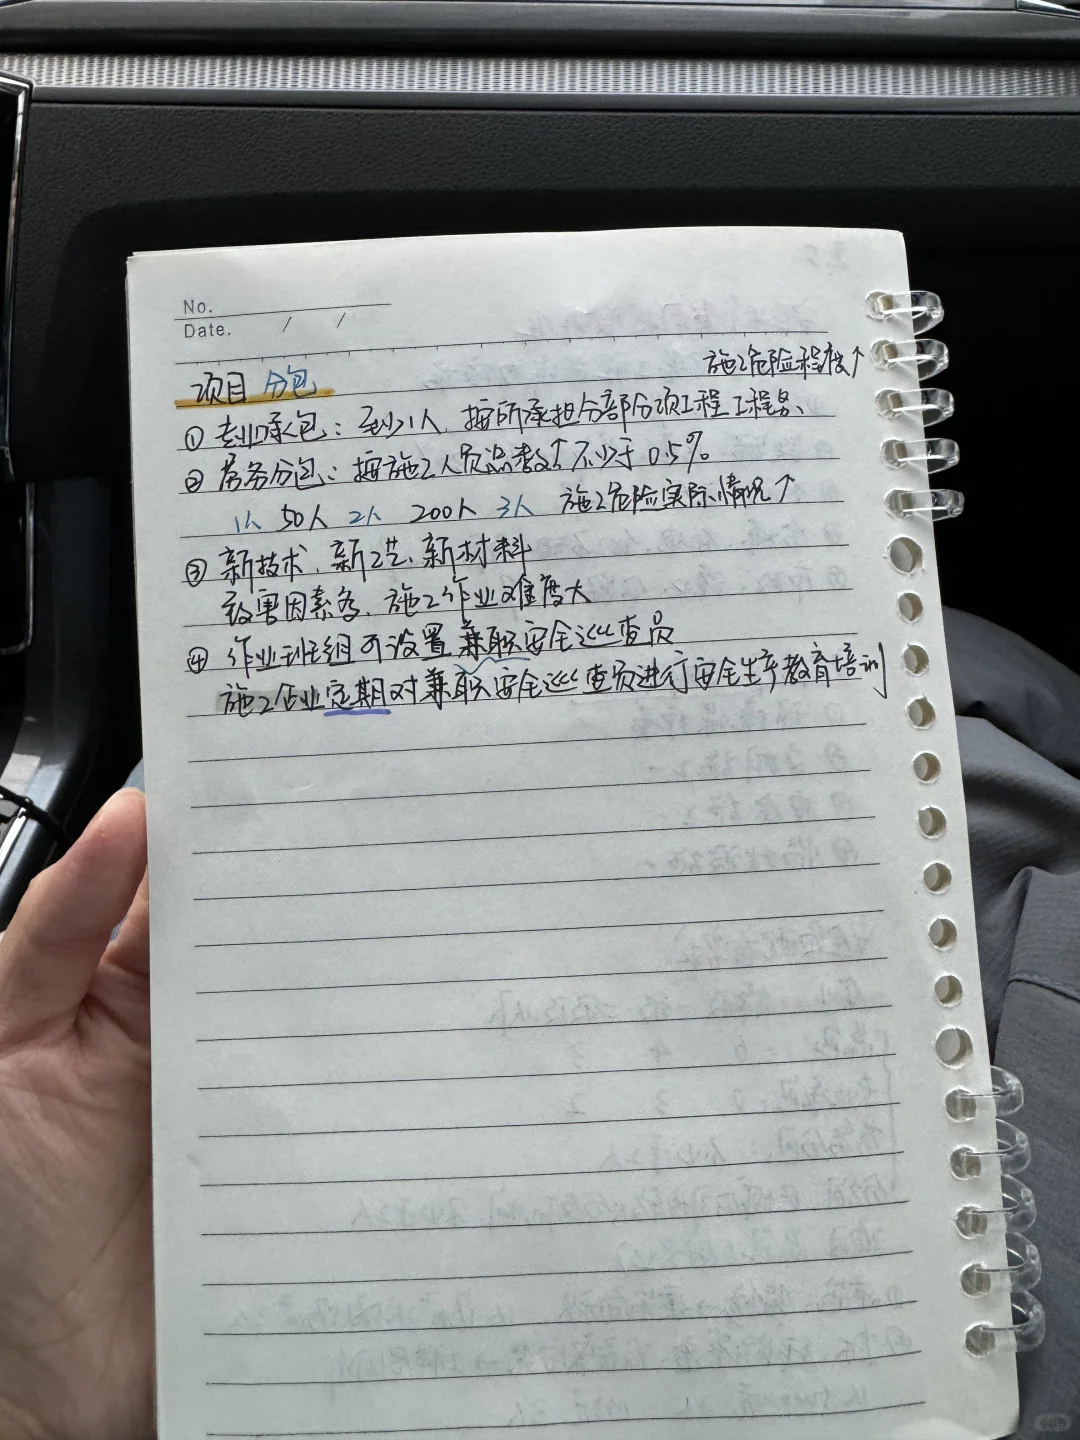 No.
Date. / /
施工危险程度↑
项目 分包
① 专业承包：至少1人 按所承担分部分项工程工程量、
② 劳务分包：按施工人员总数↑不少于0.5%
1人 50人 2人 200人 3人 施工危险实际情况↑
③ 新技术、新工艺、新材料
致害因素多、施工作业难度大
④ 作业班组可设置兼职安全巡查员
施工企业定期对兼职安全巡查员进行安全生产教育培训
小红书